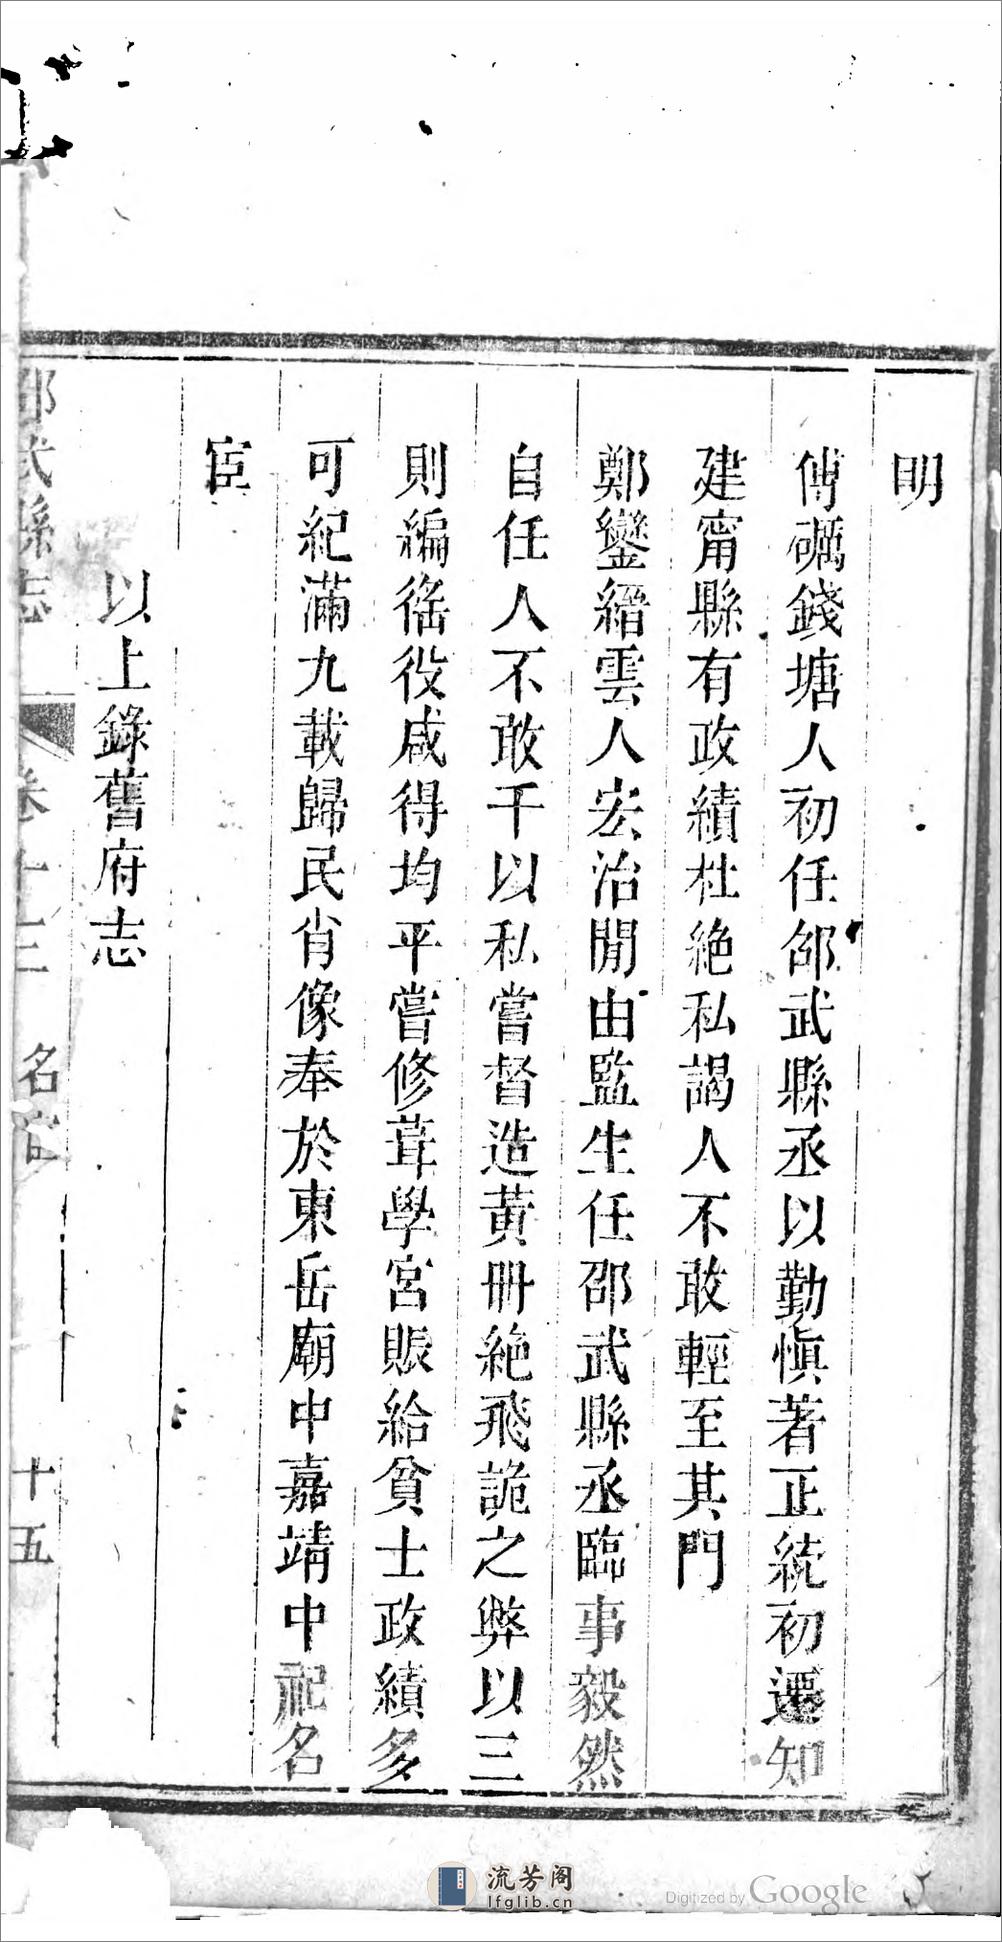 明
傅礪錢塘人初任邵武縣丞以勤慎著正統初遷知
建甯縣有政績杜絶私謁人不敢輕至其門
鄭鑾縉雲人宏治閒由監生任邵武縣丞臨事毅然
自任人不敢干以私嘗督造黃冊絶飛詭之弊以三
則編徭役咸得均平嘗修葺學宮賑給貧士政績多
可紀滿九載歸民肖像奉於東岳廟中嘉靖中祀名
宦
以上錄舊府志
邵武縣志 卷十三 名宦 十五
流芳阁
lfglib.cn
Digitized by Google